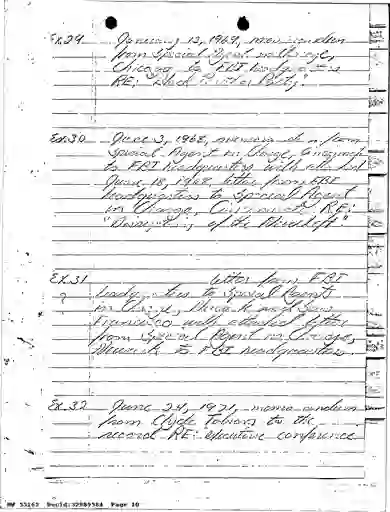 Ex. 29 January 13, 1969, memorandum
from Special Agent in Charge,
Chicago to FBI headquarters
RE: "Black Panther Party"
Ex. 30 June 3, 1968, memorandum from
Special Agent in Charge, Cincinnati
to FBI headquarters with attached
June 18, 1968 letter from FBI
headquarters to Special Agent
in Charge, Cincinnati RE:
"Disruption of the New Left"
Ex. 31 letter from FBI
? headquarters to Special Agents
in Charge, Newark and San
Francisco with attached letter
from Special Agent in Charge,
Newark to FBI headquarters.
Ex. 32 June 24, 1971, memorandum
from Clyde Tolson to the
record RE: executive conference
HW 55163 DocId:32989584 Page 10